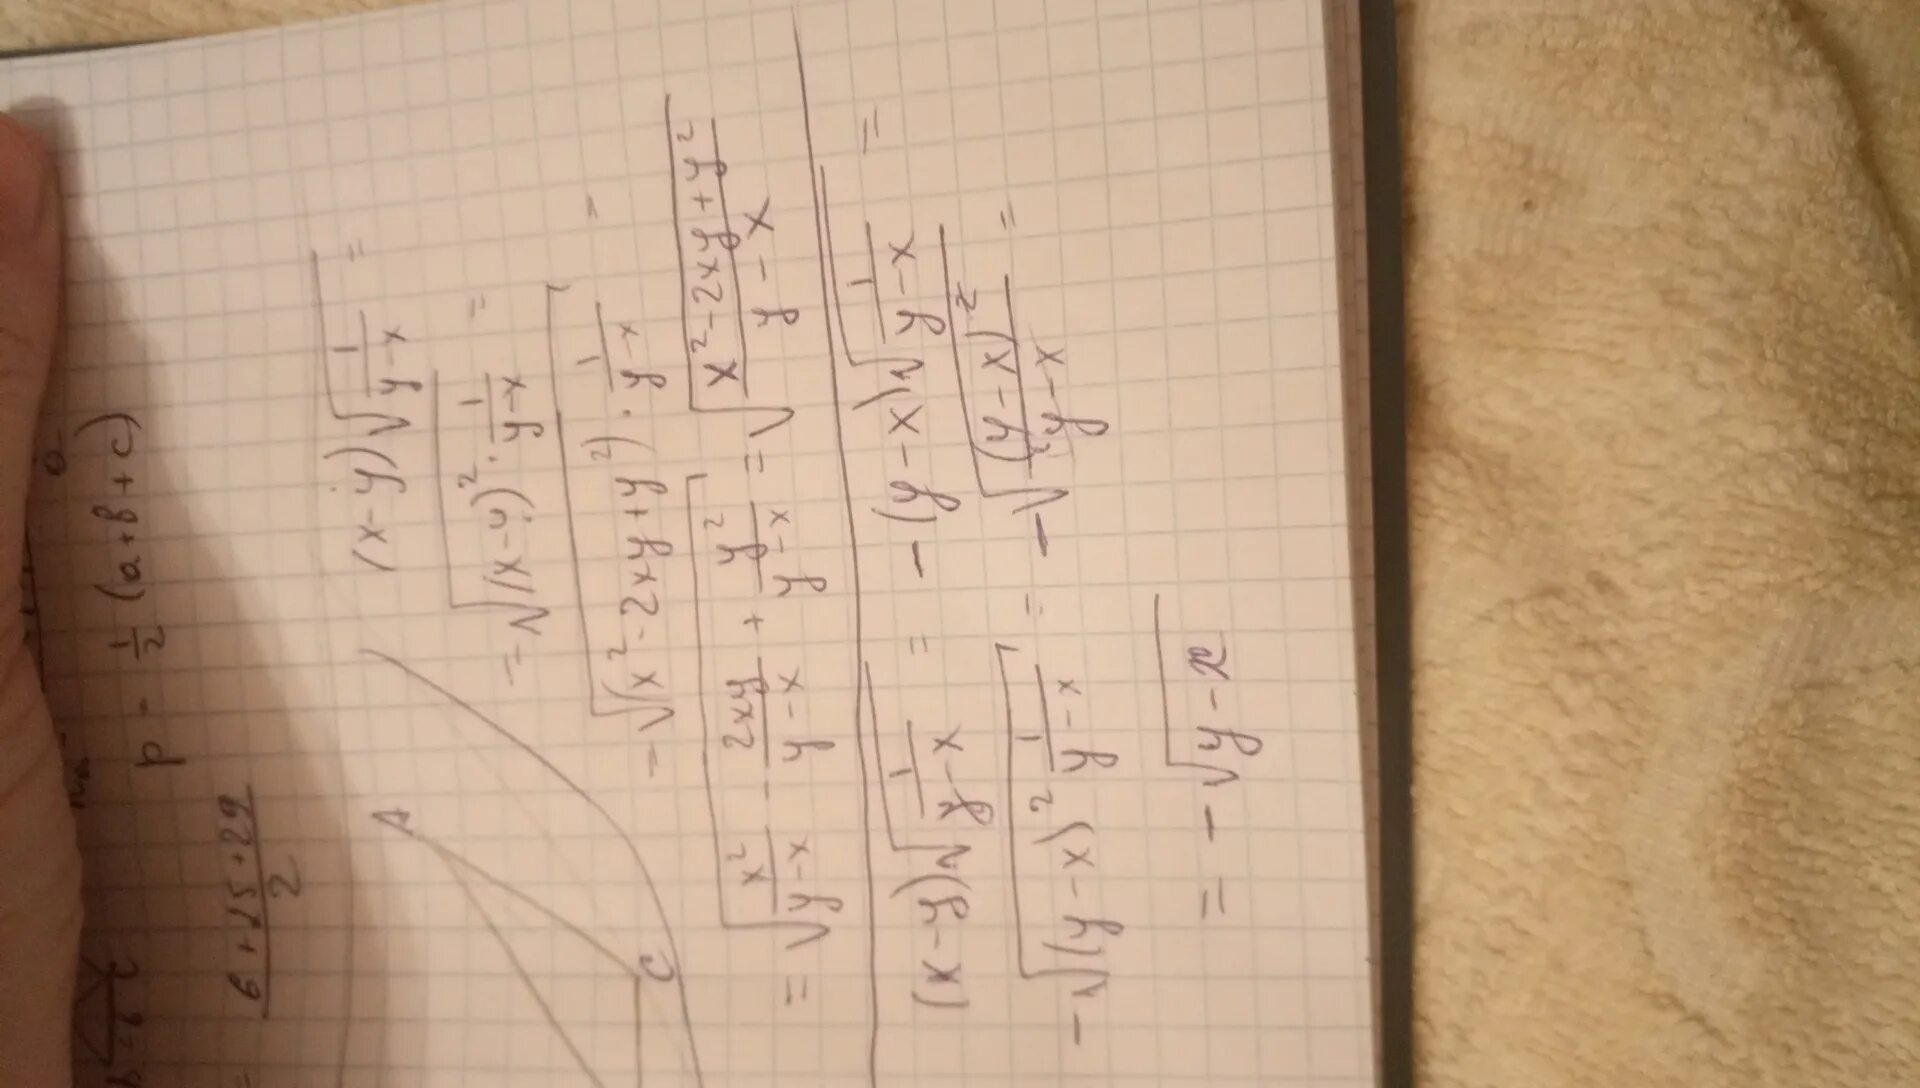 p - \frac{1}{2} (a+b+c)
\frac{6+25+29}{2}
A
C
(x-y)\sqrt{\frac{1}{y-x}} =
= \sqrt{(x-y)^2 \cdot \frac{1}{y-x}} =
= \sqrt{(x^2-2xy+y^2) \cdot \frac{1}{y-x}} =
= \sqrt{\frac{x^2}{y-x} - \frac{2xy}{y-x} + \frac{y^2}{y-x}} = \sqrt{\frac{x^2-2xy+y^2}{y-x}}
(x-y)\sqrt{\frac{1}{y-x}} = -(y-x)\sqrt{\frac{1}{y-x}} =
-\sqrt{(y-x)^2 \frac{1}{y-x}} = -\sqrt{\frac{(y-x)^2}{y-x}} =
= -\sqrt{y-x}